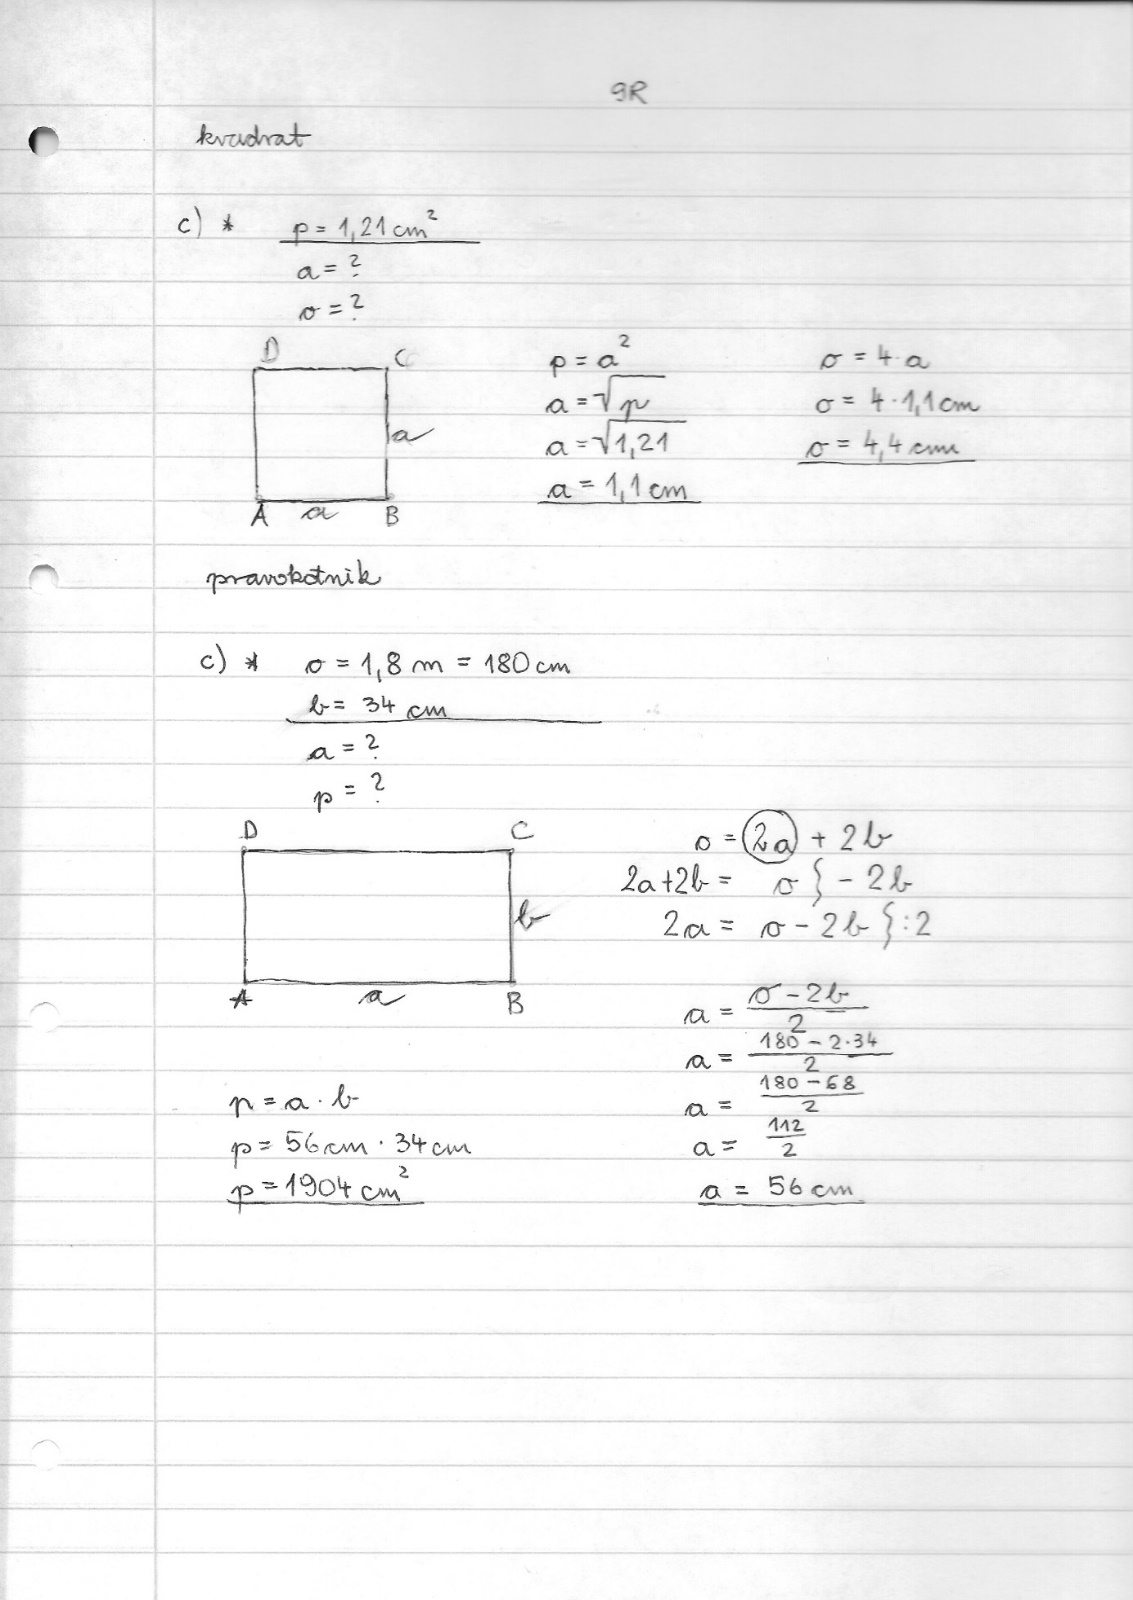 9R
kvadrat
c) * p = 1,21 cm²
a = ?
o = ?
D C
a
A a B
p = a²
a = √p
a = √1,21
a = 1,1 cm
o = 4·a
o = 4·1,1 cm
o = 4,4 cm
pravokotnik
c) * o = 1,8 m = 180 cm
b = 34 cm
a = ?
p = ?
D C
b
A a B
o = 2a + 2b
2a+2b = o } - 2b
2a = o - 2b } :2
a = (o - 2b)/2
a = (180 - 2·34)/2
a = (180 - 68)/2
a = 112/2
a = 56 cm
p = a · b
p = 56 cm · 34 cm
p = 1904 cm²